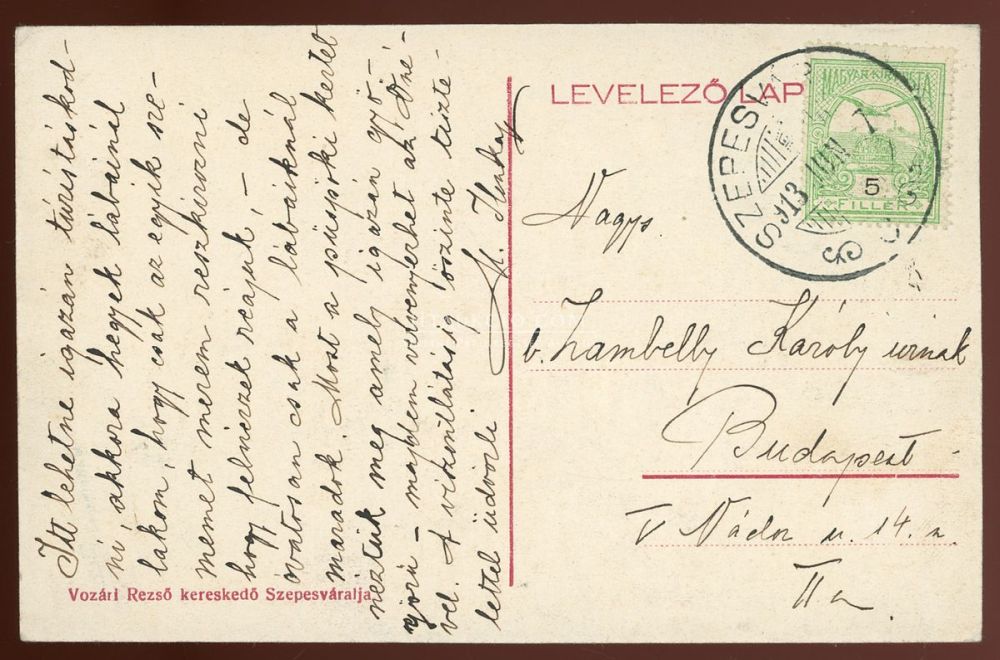 Itt lehetne igazán túristáskod-
ni akkora hegyek lábainál
lakom, hogy csak az egyik sze-
memet merem reszkirozni
hogy felnézzek reájuk – de
óvatosan csak a lábaiknál
maradok. Most a püspöki kertet
néztük meg amely igazán gyö-
nyörü – majdem versenyezhet az
vel. A viszontlátásig őszinte tiszte-
lettel üdvözli
Ilonka
Vozári Rezső kereskedő Szepesváralja
LEVELEZŐ LAP
MAGYAR KIR. POSTA
5
FILLÉR
SZEPES
913 JUN
Nagys.
b. Zambelly Károly urnak
Budapest
V Nádor u. 14. z.
II